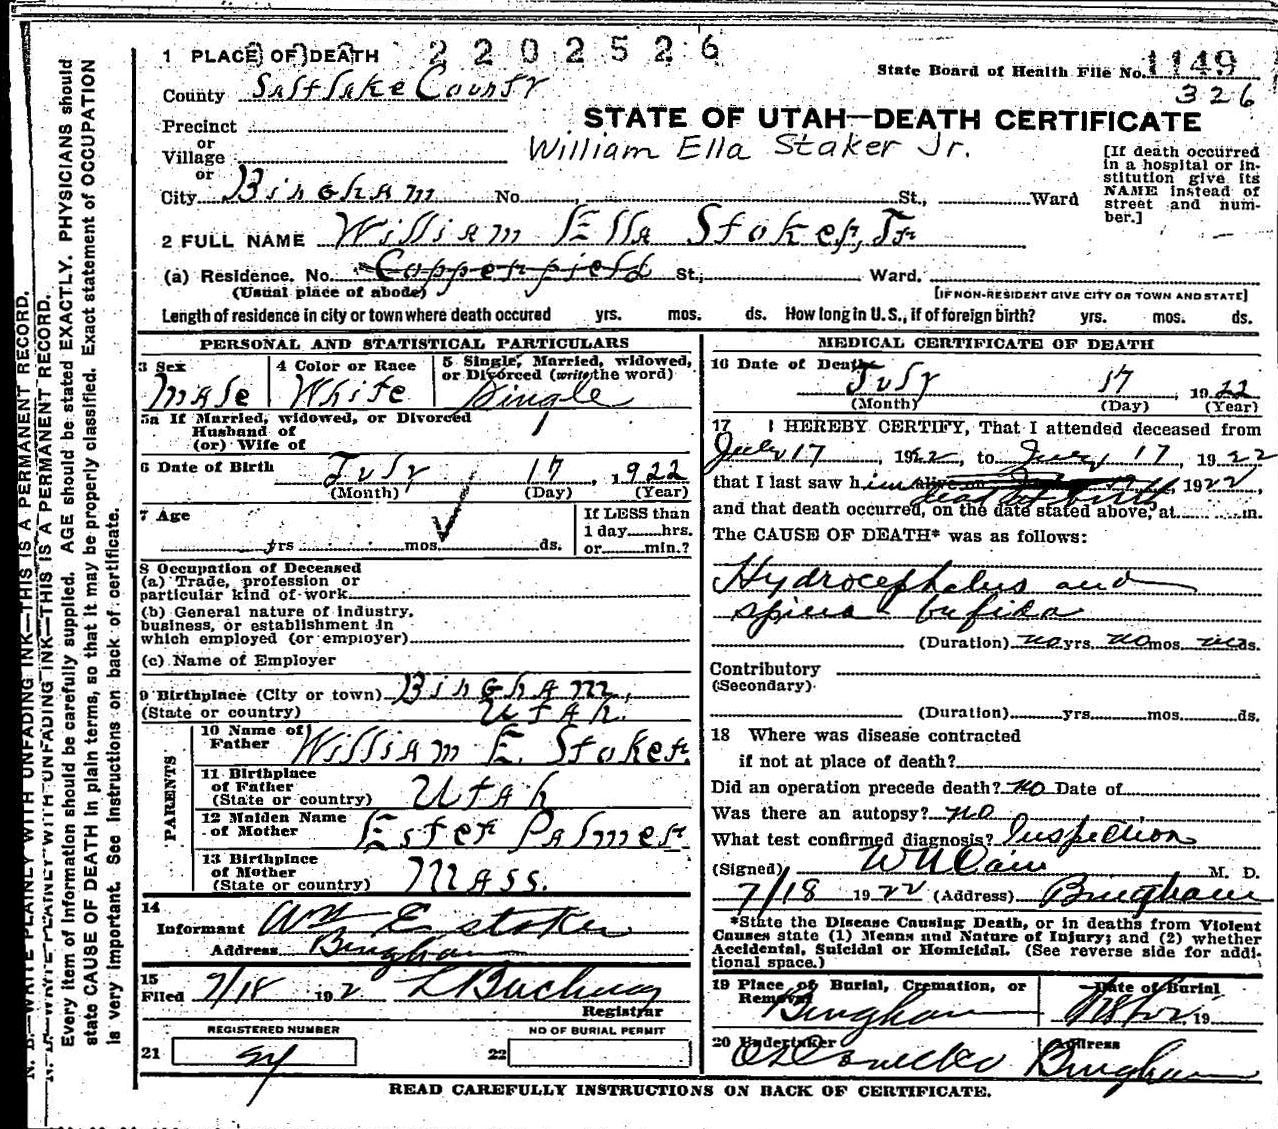 1 PLACE OF DEATH 2202526
State Board of Health File No. 1149
326
County Saltlake County
STATE OF UTAH—DEATH CERTIFICATE
Precinct
or
Village
or
William Ella Staker Jr.
[If death occurred in a hospital or institution give its NAME instead of street and number.]
City Bingham No. St., Ward
2 FULL NAME William Ella Stoker, Jr
(a) Residence, No. Copperfield St., Ward.
(Usual place of abode)
[IF NON-RESIDENT GIVE CITY OR TOWN AND STATE]
Length of residence in city or town where death occured yrs. mos. ds. How long in U.S., if of foreign birth? yrs. mos. ds.
PERSONAL AND STATISTICAL PARTICULARS
3 Sex
Male
4 Color or Race
White
5 Single, Married, widowed,
or Divorced (write the word)
Single
5a If Married, widowed, or Divorced
Husband of
(or) Wife of
6 Date of Birth July 17, 1922
(Month) (Day) (Year)
7 Age
yrs mos. ds.
If LESS than
1 day hrs.
or min.?
8 Occupation of Deceased
(a) Trade, profession or
particular kind of work
(b) General nature of industry,
business, or establishment in
which employed (or employer)
(c) Name of Employer
9 Birthplace (City or town) Bingham,
(State or country) Utah.
PARENTS
10 Name of
Father William E. Stoker.
11 Birthplace
of Father
(State or country) Utah
12 Maiden Name
of Mother Ester Palmer.
13 Birthplace
of Mother
(State or country) Mass.
14
Informant Wm E Staker
Address Bingham
15
Filed 7/18 192
Registrar
REGISTERED NUMBER
21
NO OF BURIAL PERMIT
22
MEDICAL CERTIFICATE OF DEATH
16 Date of Death July 17, 1922
(Month) (Day) (Year)
17 I HEREBY CERTIFY, That I attended deceased from
July 17, 1922, to July 17, 1922
that I last saw him alive on, 1922,
dead at birth
and that death occurred, on the date stated above, at m.
The CAUSE OF DEATH* was as follows:
Hydrocephalus and
spina bifida
(Duration) no yrs. no mos. ds.
Contributory
(Secondary)
(Duration) yrs. mos. ds.
18 Where was disease contracted
if not at place of death?
Did an operation precede death? no Date of
Was there an autopsy? no
What test confirmed diagnosis? Inspection
(Signed) M. D.
7/18 1922 (Address) Bingham
*State the Disease Causing Death, or in deaths from Violent
Causes state (1) Means and Nature of Injury; and (2) whether
Accidental, Suicidal or Homicidal. (See reverse side for additional space.)
19 Place of Burial, Cremation, or
Removal Bingham
Date of Burial
, 19
20 Undertaker
Address
Bingham
READ CAREFULLY INSTRUCTIONS ON BACK OF CERTIFICATE.
N. B.—WRITE PLAINLY WITH UNFADING INK—THIS IS A PERMANENT RECORD.
N. B.—WRITE PLAINLY WITH UNFADING INK—THIS IS A PERMANENT RECORD.
Every item of information should be carefully supplied. AGE should be stated EXACTLY. PHYSICIANS should
state CAUSE OF DEATH in plain terms, so that it may be properly classified. Exact statement of OCCUPATION
is very important. See instructions on back of certificate.